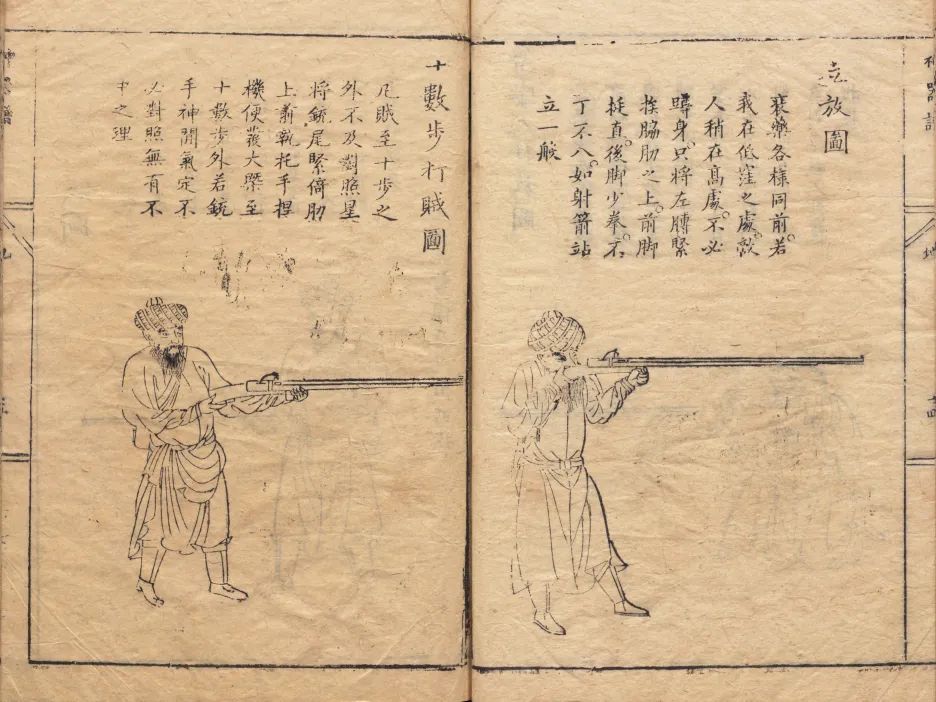 立放圖
裝藥各樣同前。若
我在低窪之處。敵
人稍在高處。不必
蹲身。只將左膊緊
挨脇肋之上。前脚
挺直。後脚少拳。不
丁不八。如射箭站
立一般
十數步打賊圖
凡賊至十步之
外不及對照星
將銃尾緊倚肋
上前執托手捏
機便發大槩至
十數步外若銃
手神閒氣定不
必對照無有不
中之理